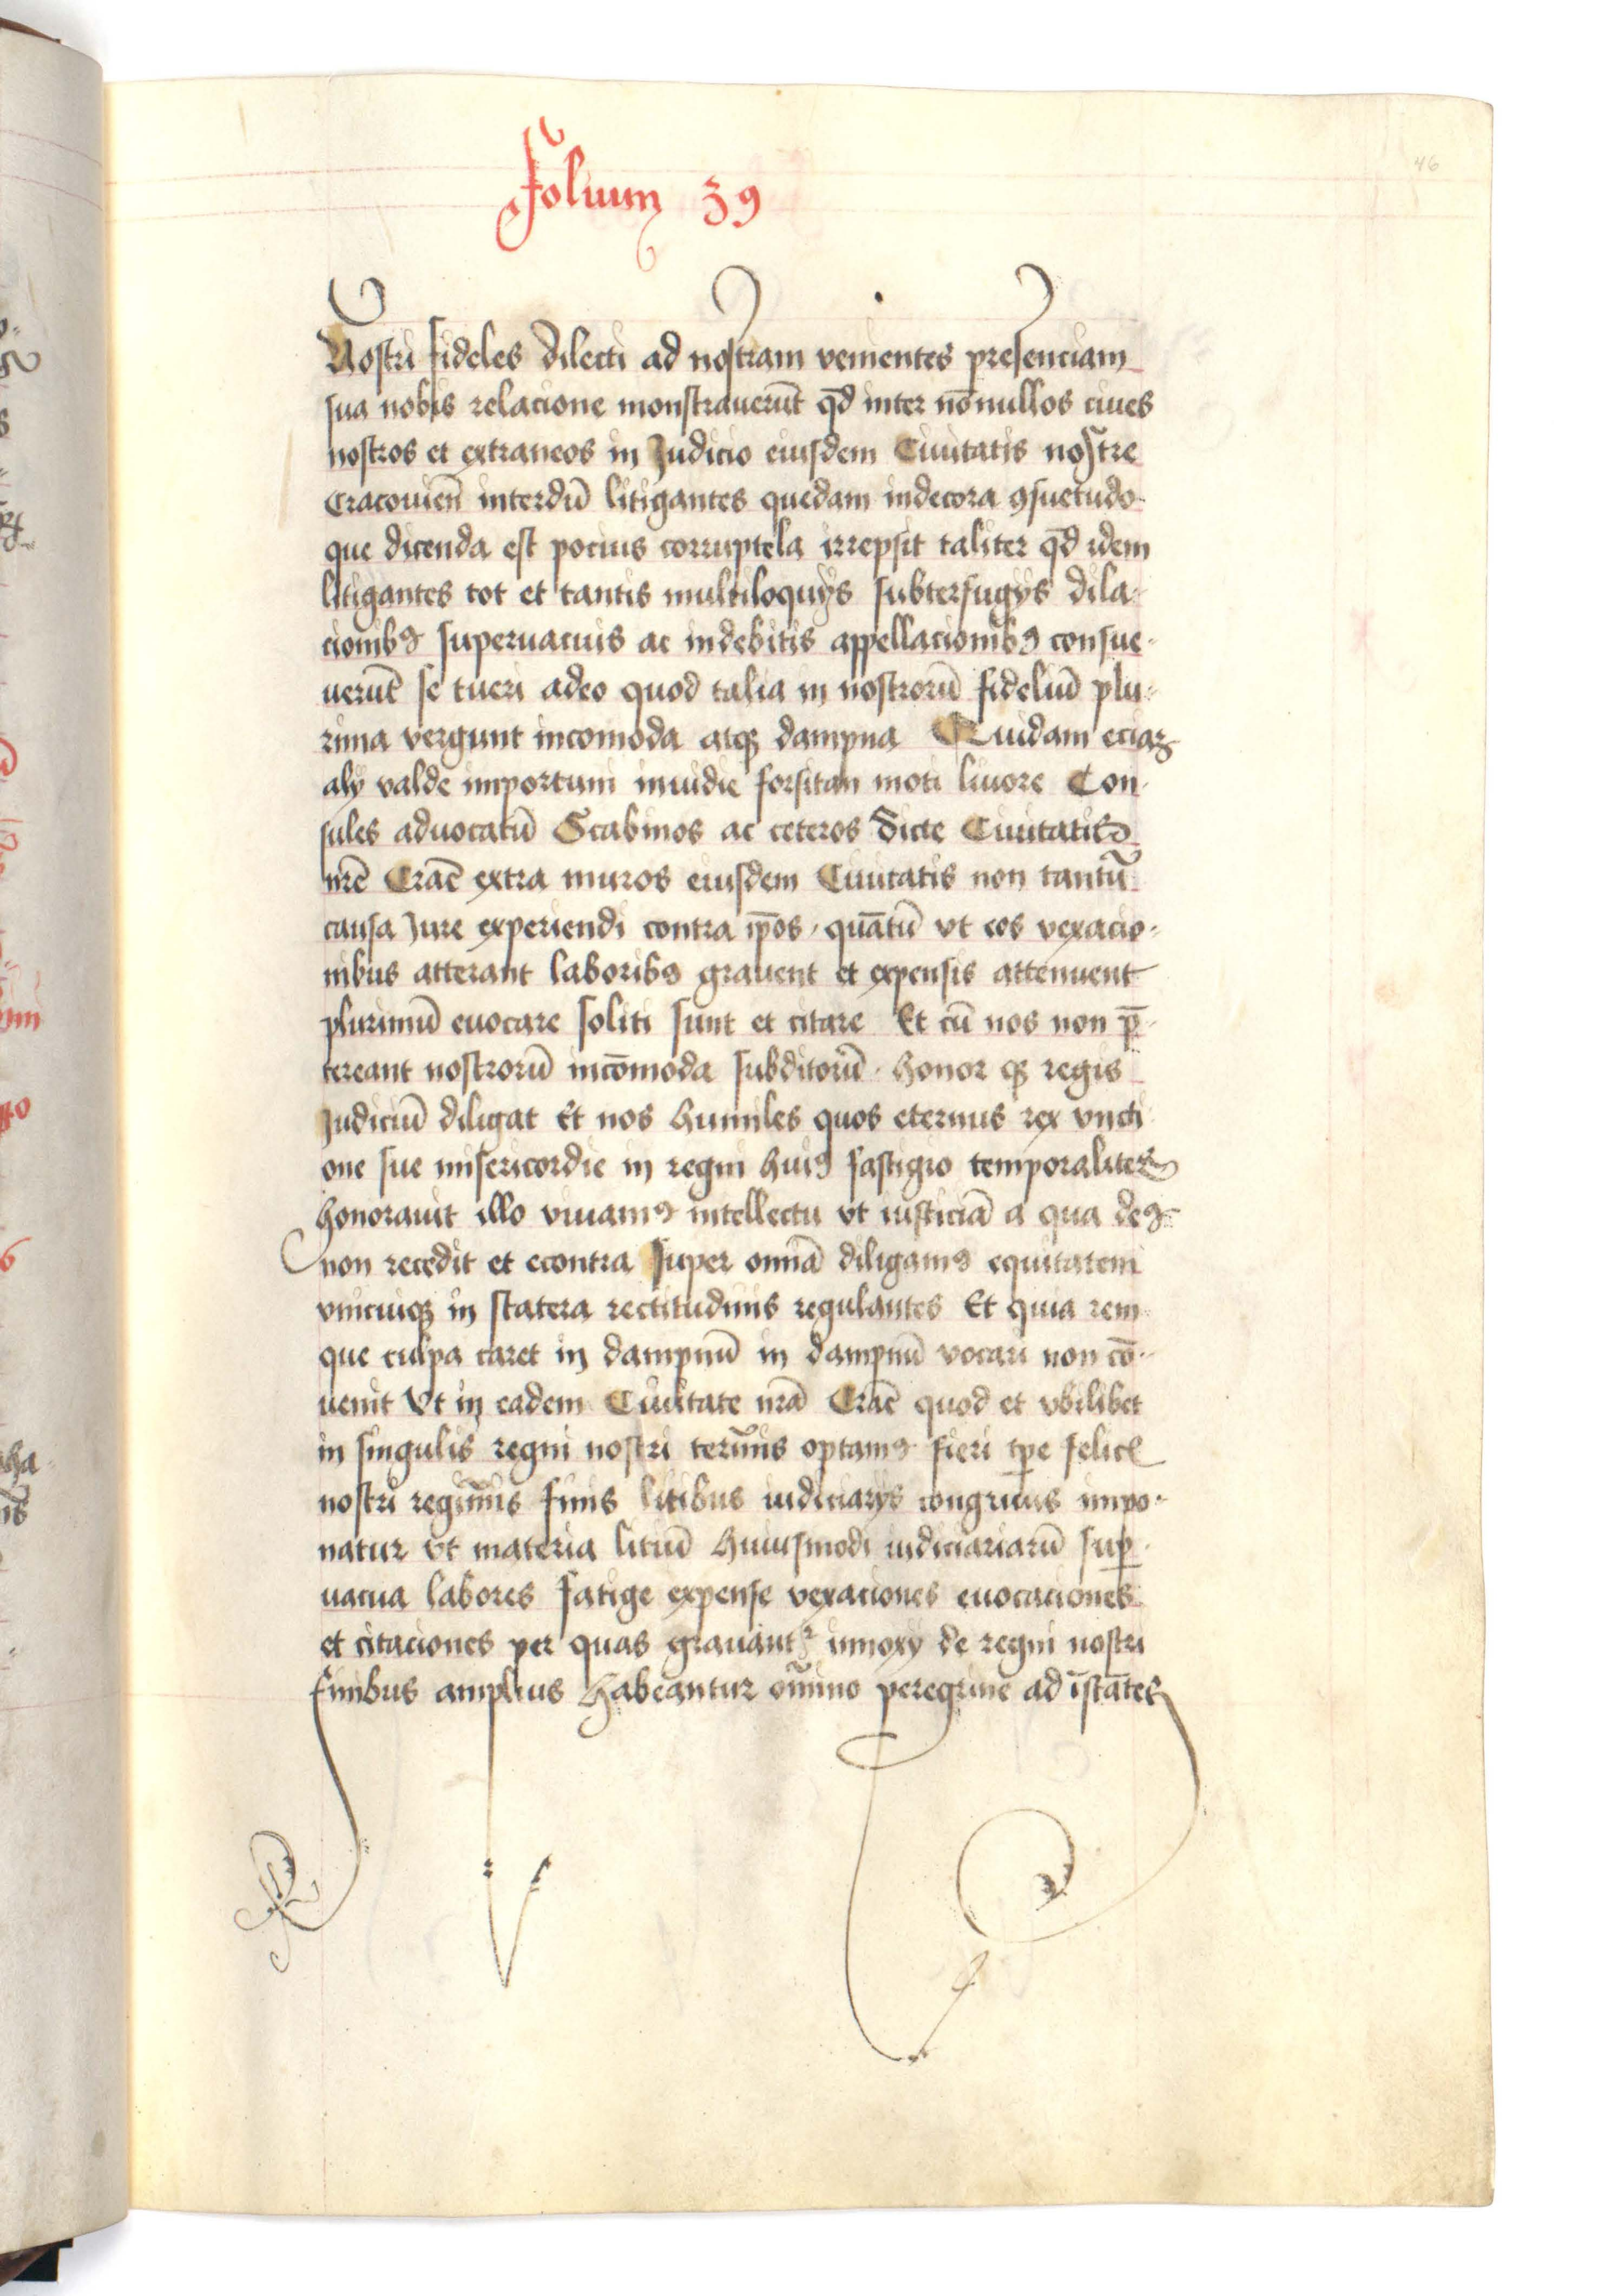 46
Folium 39
Nostri fideles dilecti ad nostram venientes presenciam
sua nobis relacione monstrauerūt qd̄ inter nōnullos ciues
nostros et extraneos in Judicio eiusdem Ciuitatis nostre
Cracouień interdū litigantes quedam indecora ꝯsuetudo
que dicenda est pocius corruptela irrepsit taliter qd̄ idem
litigantes tot et tantis multiloquijs subterfugijs dila-
cionibꝰ superuacuis ac indebitis appellacionibꝰ consue-
uerūt se tueri adeo quod talia in nostrorū fideliū plu-
rima vergunt incomoda atqꝫ dampna Quidam eciaꝫ
alij valde importuni inuidie forsitan moti liuore Con-
sules aduocatū Scabinos ac ceteros dicte Ciuitatis
nrē Crac̄ extra muros eiusdem Ciuitatis non tantū
causa Jure experiendi contra ip̄os, quātū vt eos vexacio-
nibus atterant laboribꝰ grauent et expensis attenuent
plurimū euocare soliti sunt et citare Et cū nos non p̄-
tereant nostrorū incōmoda subditorū. honor qꝫ regis
Judiciū diligat Et nos humiles quos eternus rex vncti
one sue misericordie in regni huiꝰ fastigio temporaliter
honorauit illo viuamꝰ intellectu vt iusticiā a qua deꝰ
non recedit et econtra super omīa diligamꝰ equitatem
vnicuiqꝫ in statera rectitudinis regulantes Et quia rem
que culpa caret in dampnū in dampnū vocari non cō-
uenit Vt in eadem Ciuitate nrā Crac̄ quod et vbilibet
in singulis regni nostri termīs optamꝰ fieri tp̄e felicꝭ
nostri regimīs finis litibus iudiciarijs congruus impo-
natur vt materia litiū huiusmodi iudiciariarū suꝑ-
uacua labores fatige expense vexaciones euocaciones
et citaciones per quas grauantᷣ innoxij de regni nostri
finibus amplius habeantur om̄ino peregrine ad īstātes